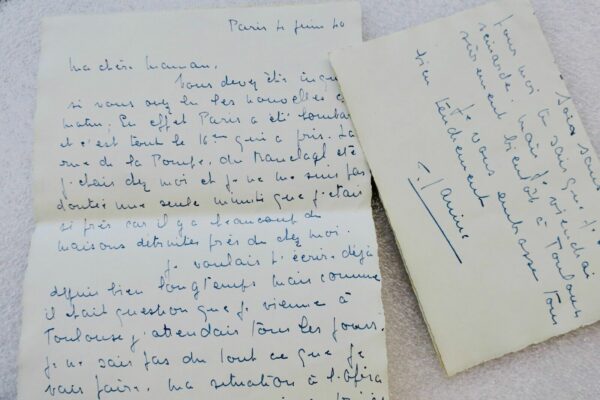 Paris 4 juin 40
Ma chère Maman,
Vous devez être
si vous avez lu les nouvelles
matin. En effet Paris a été
et c'est tout le 16me qui a pris. La
rue de la Pompe, du Ranelagh etc
j'étais chez moi et je ne me suis pas
doutée une seule minute que j'étais
si près car il y a beaucoup de
maisons détruites près de chez moi.
Je voulais t'écrire déjà
depuis bien longtemps mais comme
il était question que je vienne à
Toulouse j'attendais tous les jours.
Je ne sais pas du tout ce que je
vais faire. Ma situation à l'Opéra
Sois sans
pour moi tu sais que je
mais je viendrai
sûrement bientôt à Toulouse
Je vous embrasse tous
bien tendrement